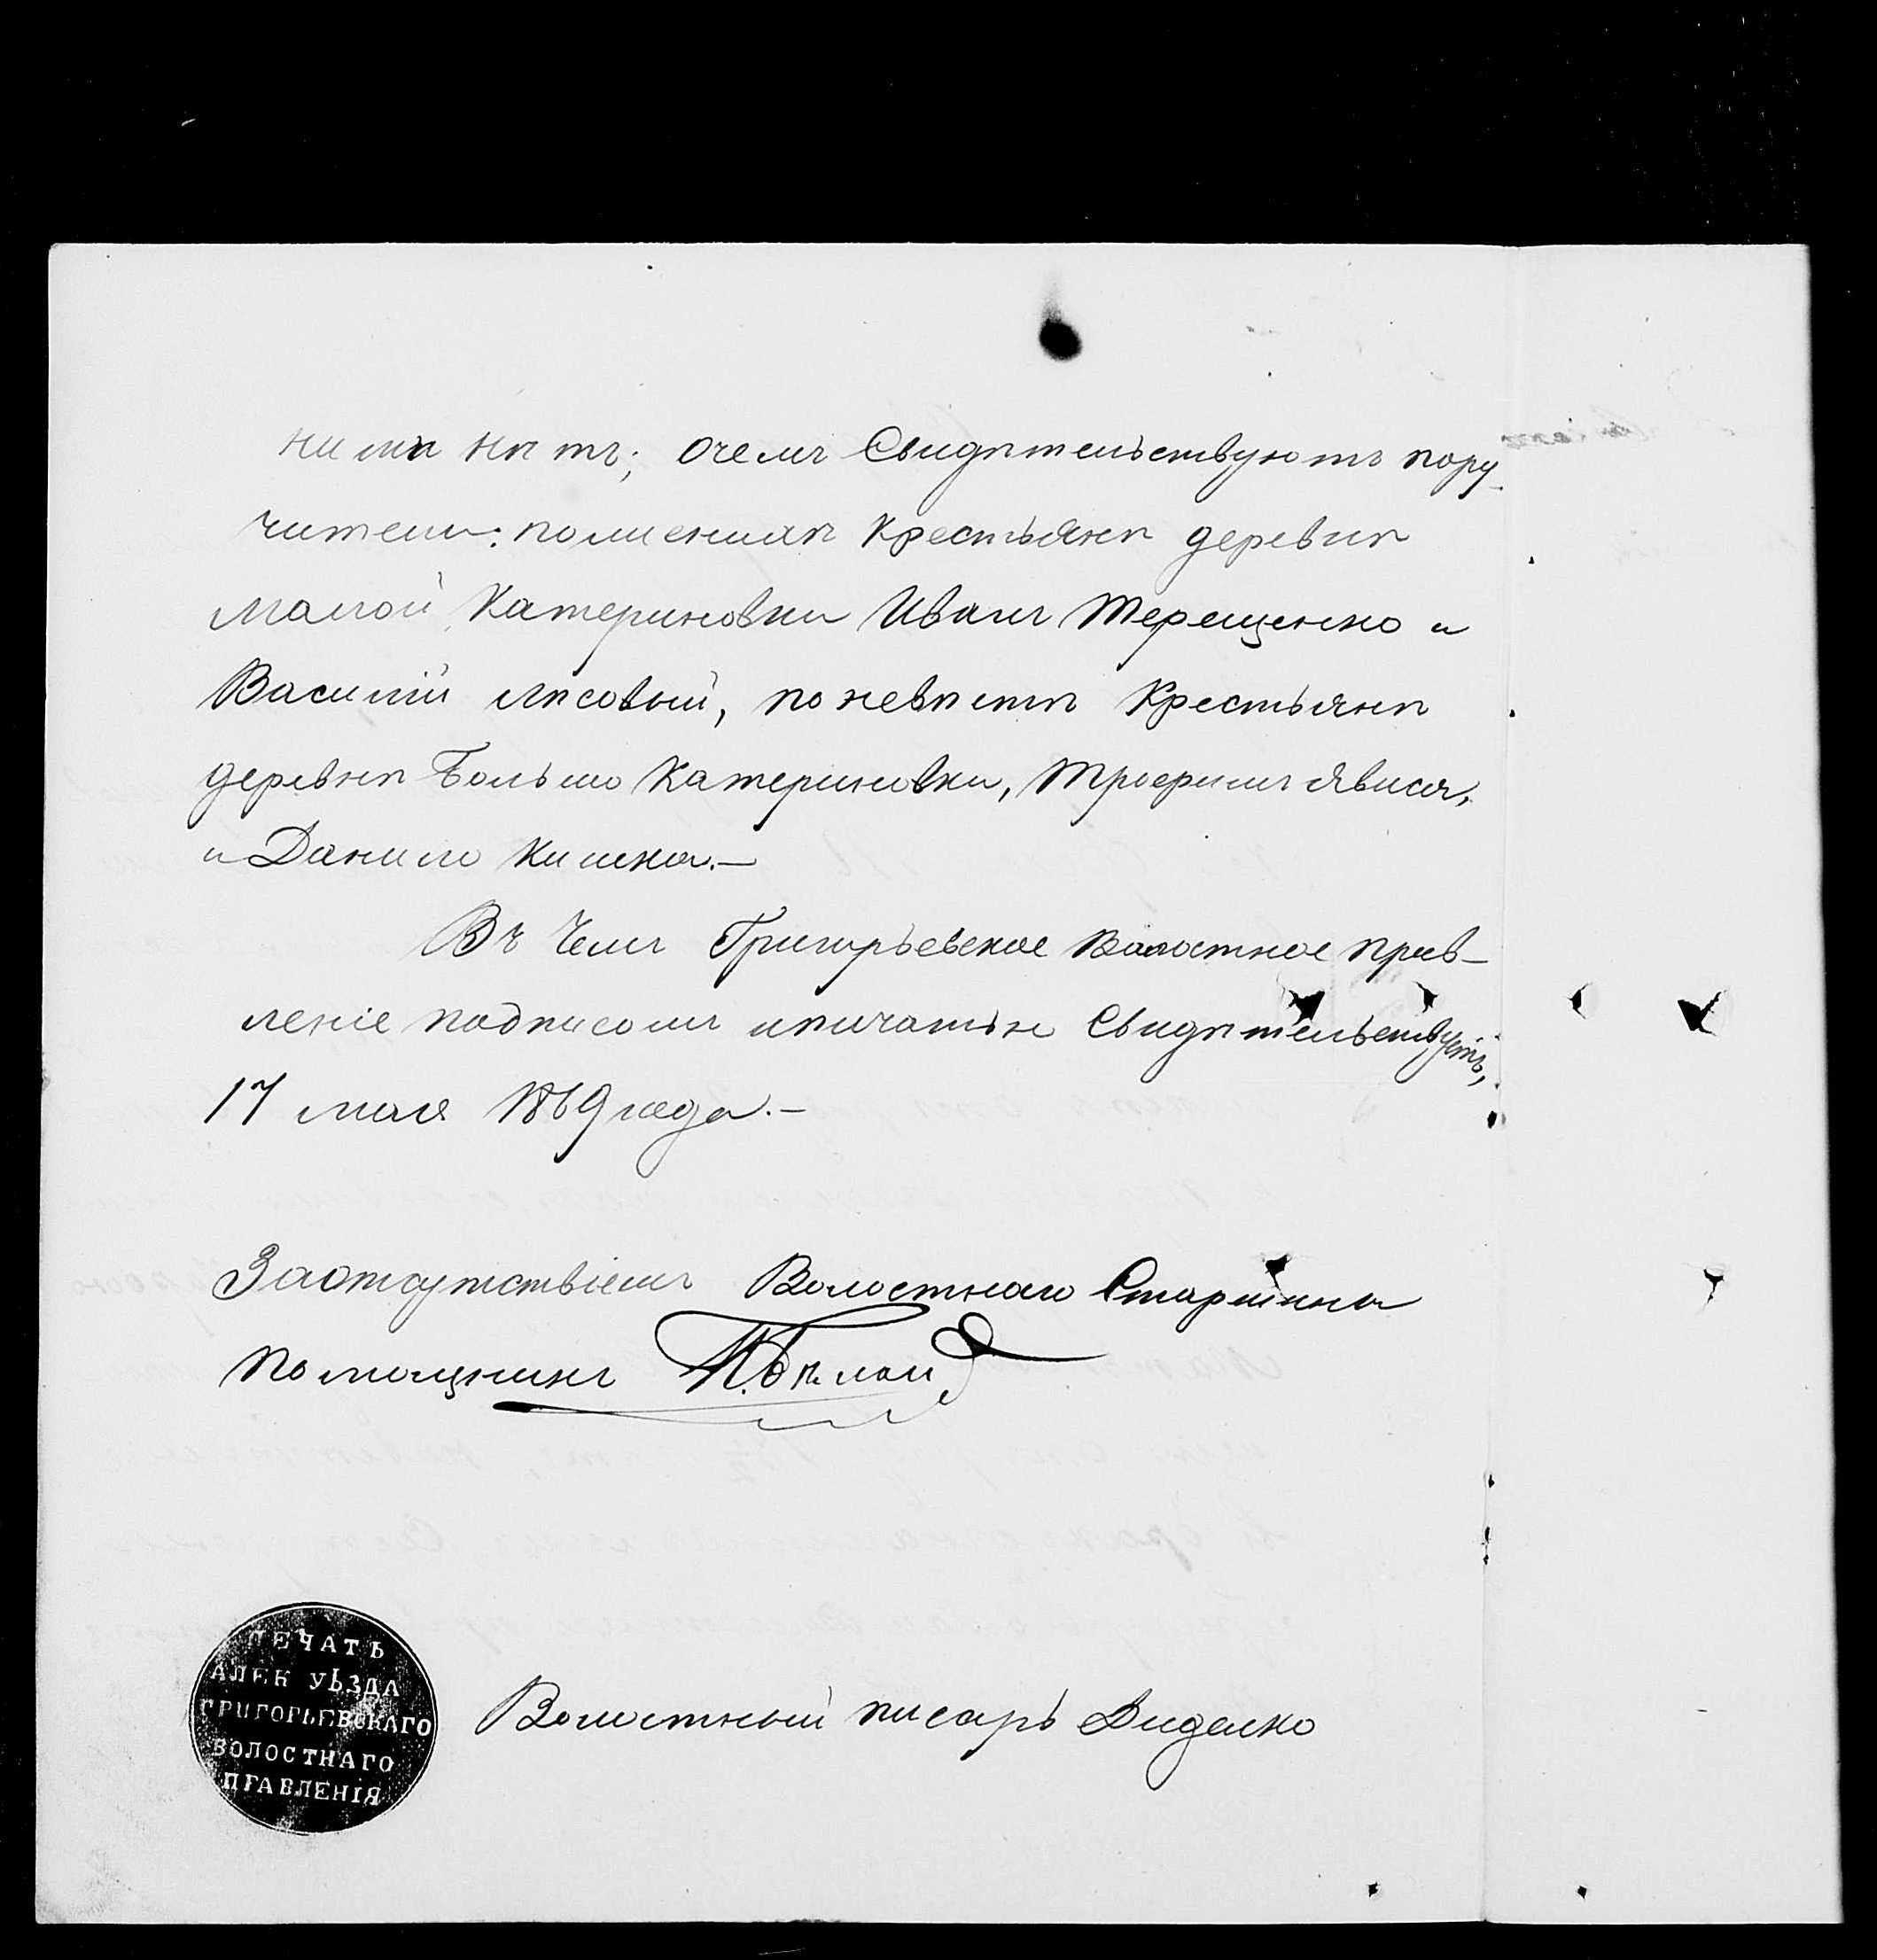 ними нѣтъ; очемъ Свидѣтельствуютъ пору-
чители: пожениха Крестьянѣ деревнѣ
Малой Катериновки Иванъ Терещенко и
Василій Лѣсовый, поневѣстѣ Крестьянѣ
деревнѣ Большо Катериновки, Трофимъ Явися,
и Данило Кишка.—
Въ Чемъ Григорьевское Волостное прав-
леніе подписомъ ипичатью Свидѣтельствуетъ,
17 мая 1869 года.—
Заотсутствіемъ Волостнаго Старшины
помощникъ Н. Бѣлой
ПЕЧАТЬ
АЛЕК УѢЗДА
ГРИГОРЬЕВСКАГО
ВОЛОСТНАГО
ПРАВЛЕНІЯ
Волостный писарь Диденко